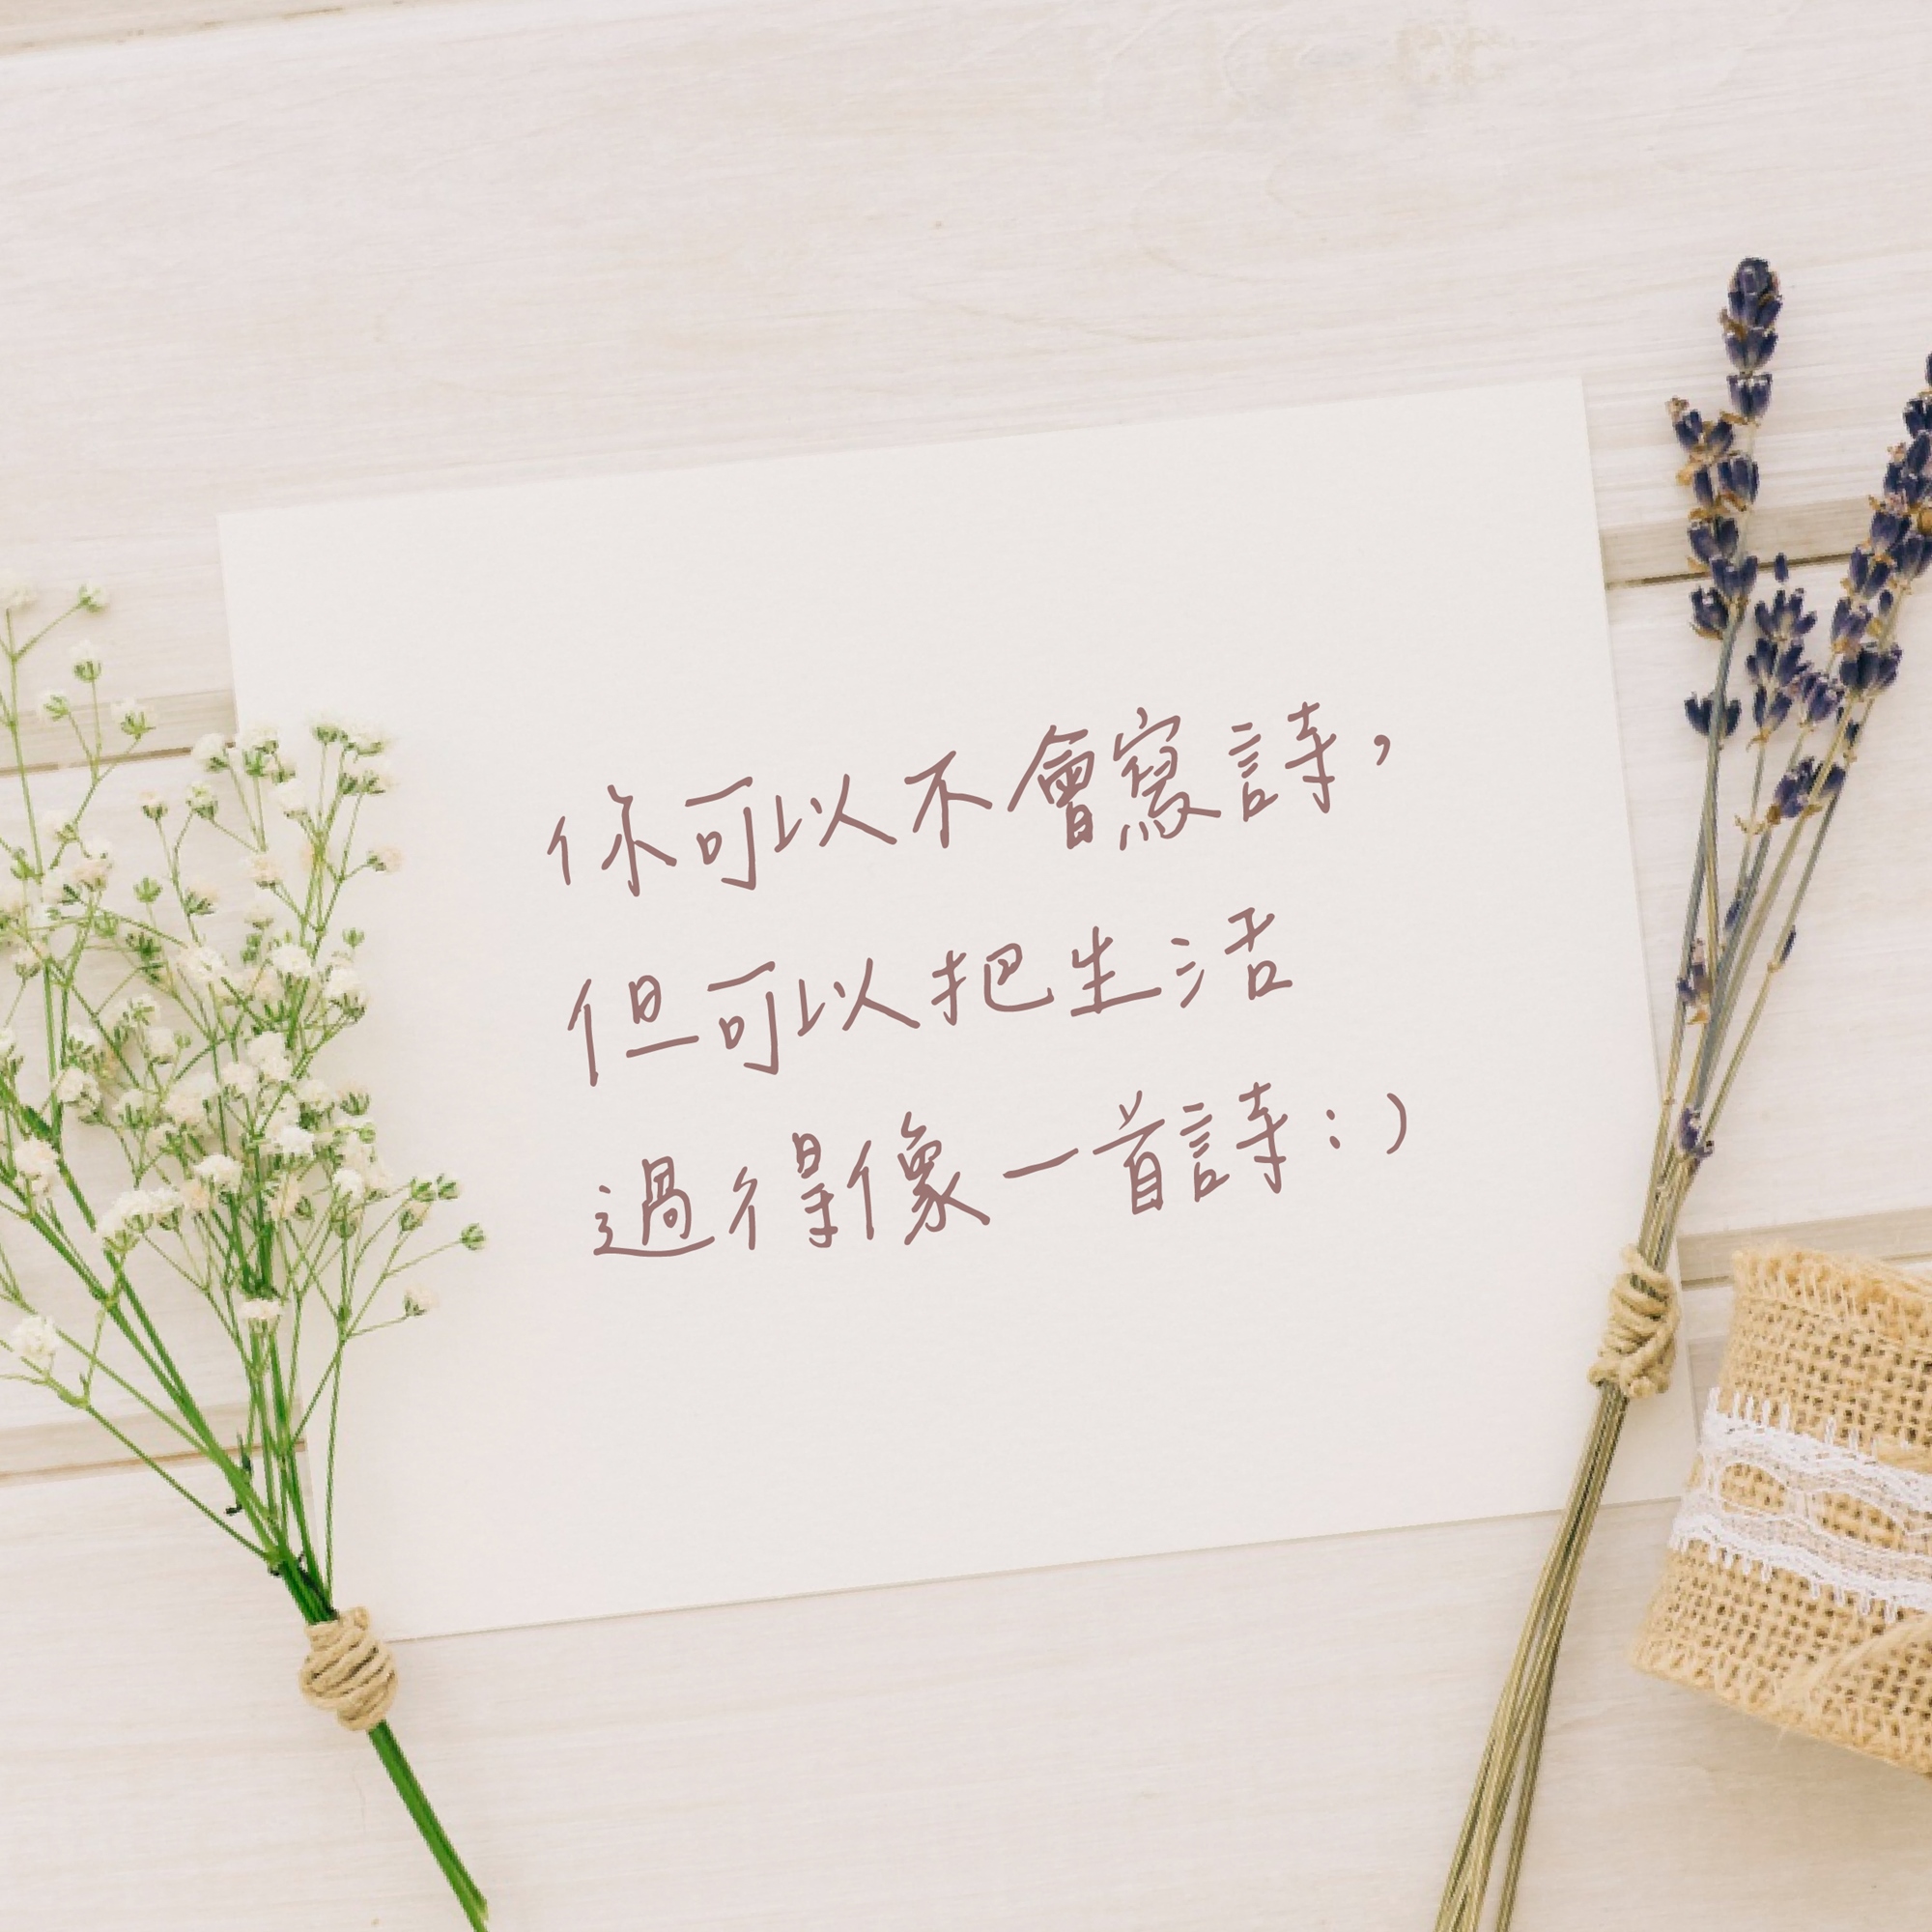 你可以不會寫詩，
但可以把生活
過得像一首詩：）